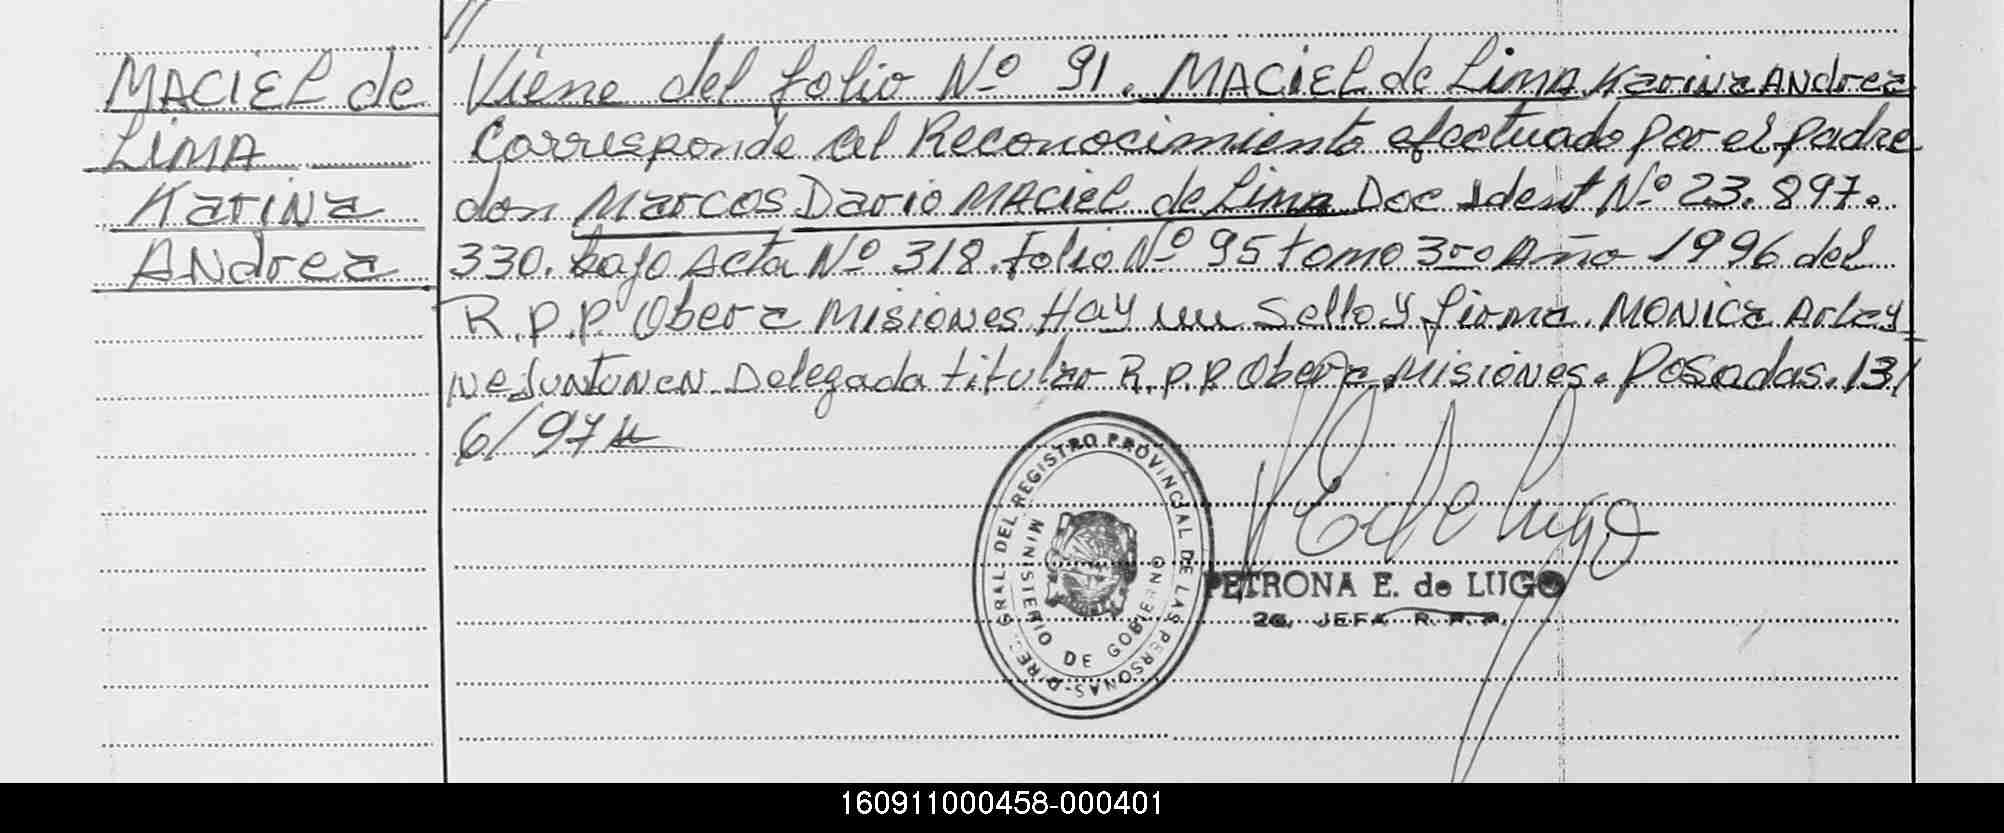 MACIEL de
LIMA
Karina
Andrea
//
Viene del folio Nº 91. MACIEL de Lima Karina Andrea
Corresponde al Reconocimiento efectuado por el padre
don Marcos Dario MACIEL de Lima Doc Ident Nº 23.897.
330. bajo Acta Nº 318. folio Nº 95 tomo 3ro Año 1996 del
R.P.P Obera Misiones Hay un Sello y firma. MONICA
Delegada titular R.P.P Obera Misiones. Posadas. 13/
6/97
DIREC. GRAL DEL REGISTRO PROVINCIAL DE LAS PERSONAS-
MINISTERIO DE GOBIERNO
PETRONA E. de LUGO
2a. JEFA R.P.P.
160911000458-000401